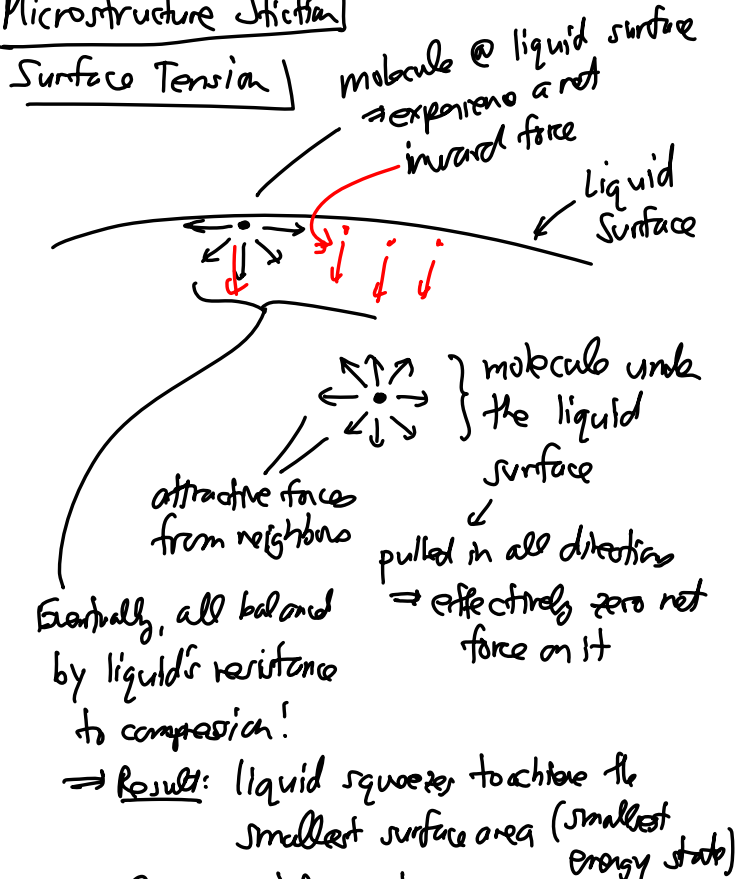 Microstructure Stiction
Surface Tension
molecule @ liquid surface
⇒ experience a net
inward force
Liquid
Surface
molecule under
the liquid
surface
attractive forces
from neighbors
pulled in all directions
⇒ effectively zero net
force on it
Eventually, all balanced
by liquid's resistance
to compression!
⇒ Result: liquid squeezes to achieve the
smallest surface area (smallest
energy state)